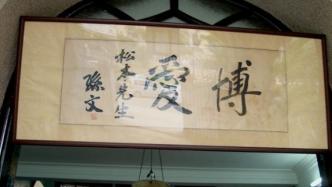 博愛
松本先生
孫文